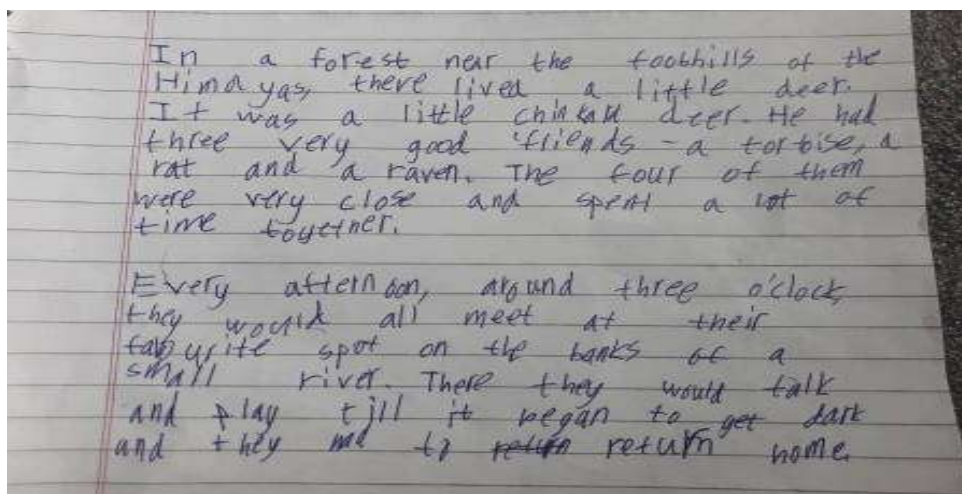 In a forest near the foothills of the
Himayas, there lived a little deer.
It was a little chinkara deer. He had
three very good friends - a tortise, a
rat and a raven. The four of them
were very close and spent a lot of
time together.
Every afternoon, around three o'clock,
they would all meet at their
favourite spot on the banks of a
small river. There they would talk
and play till it began to get dark
and they to return home.